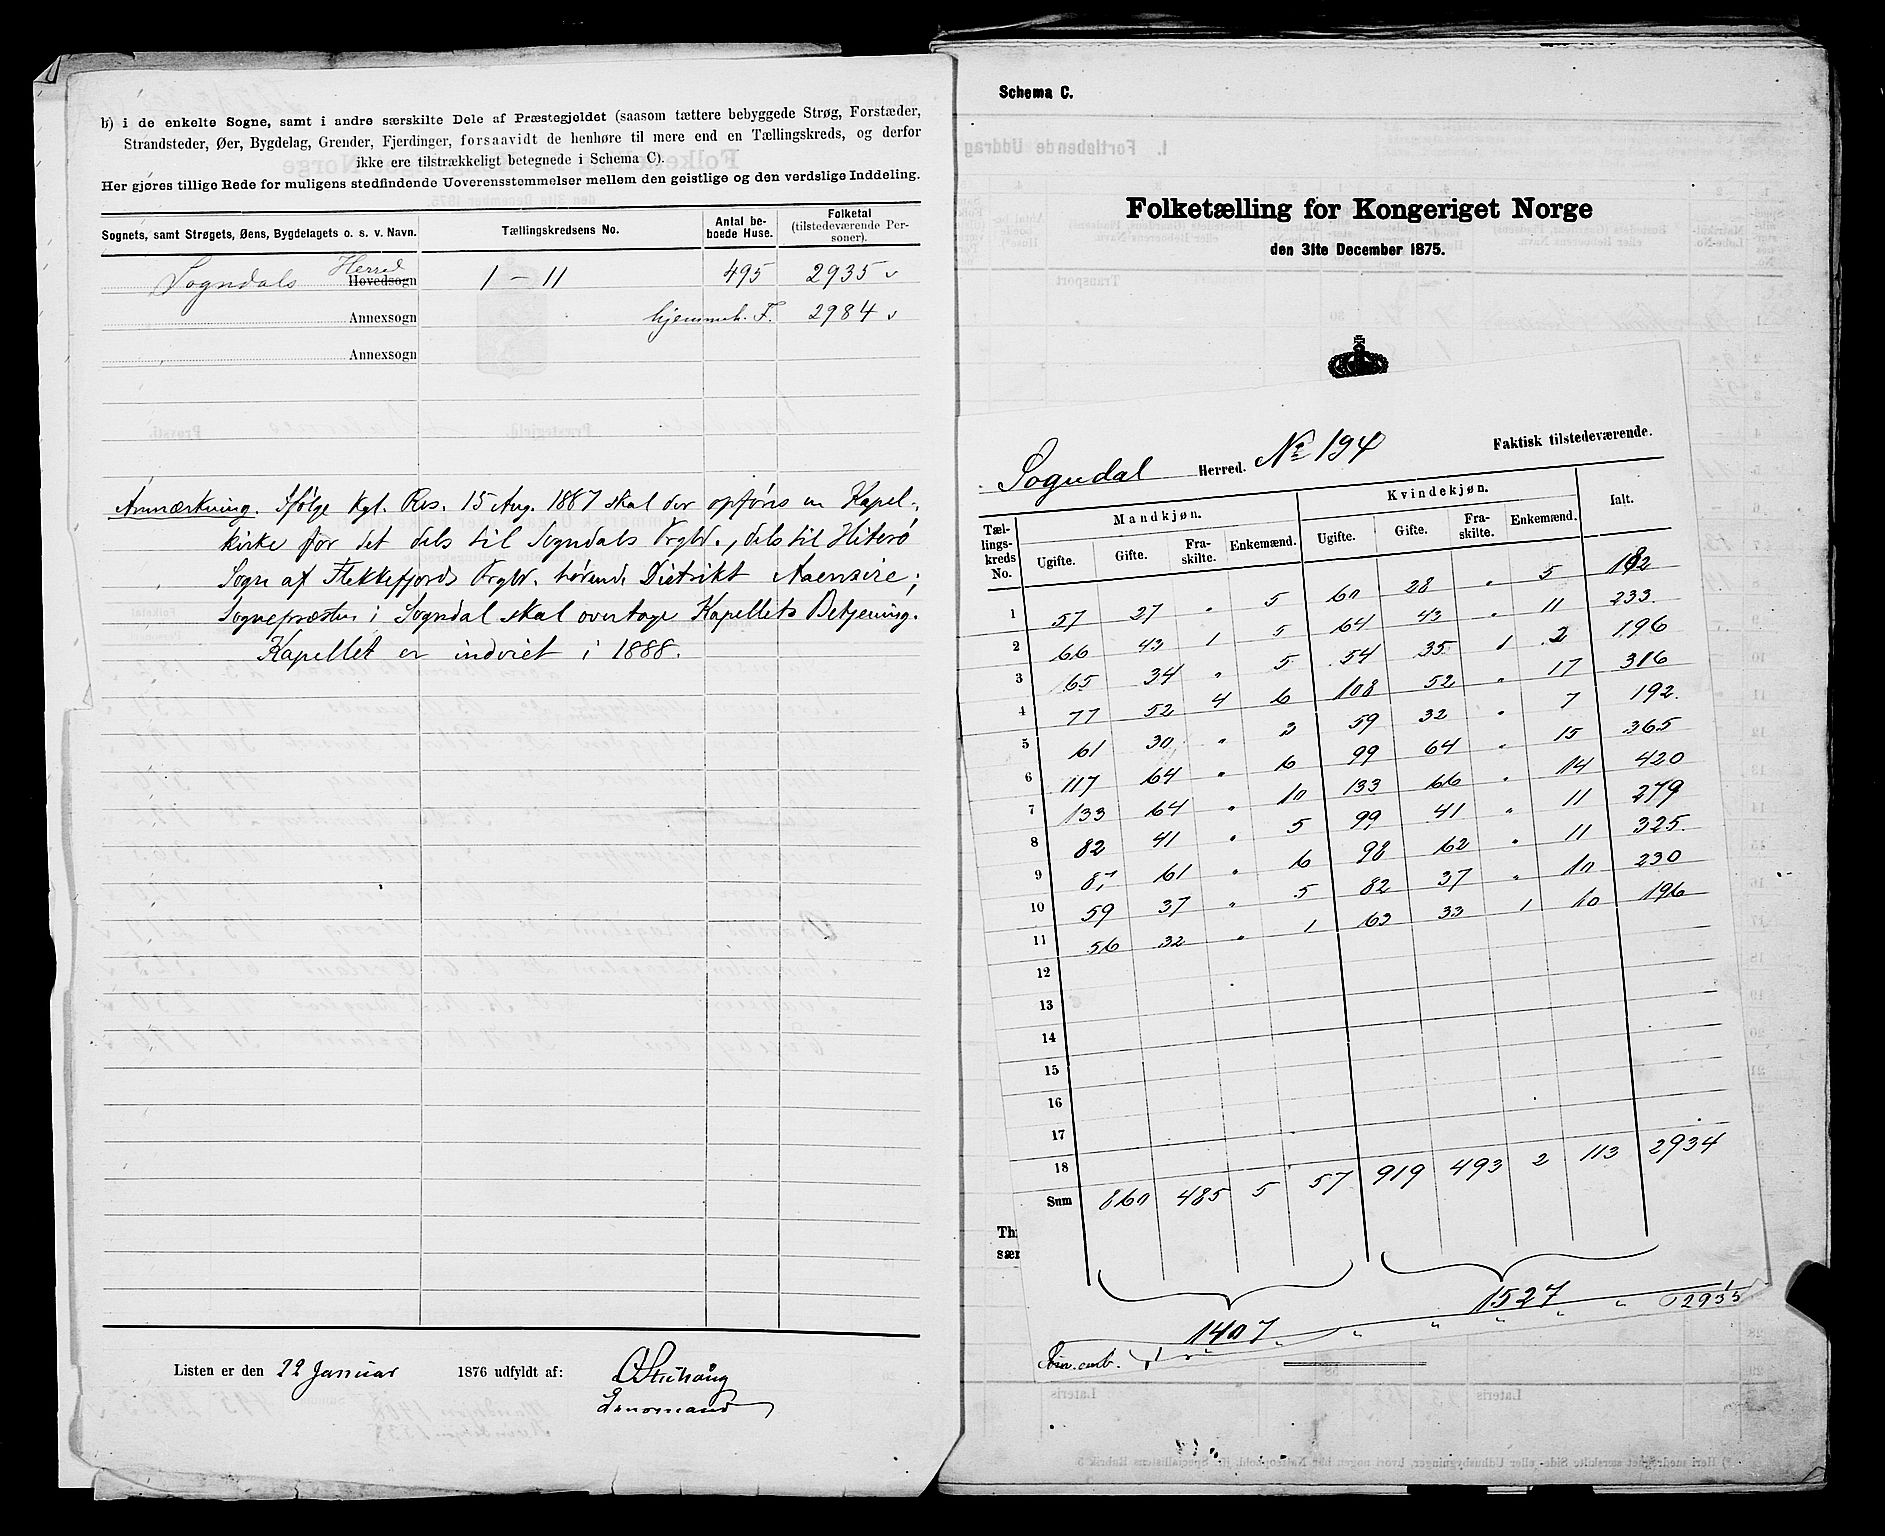 b) i de enkelte Sogne, samt i andre særskilte Dele af Præstegjeldet (saasom tættere bebyggede Strøg, Forstæder,
Strandsteder, Øer, Bygdelag, Grender, Fjerdinger, forsaavidt de henhøre til mere end en Tællingskreds, og derfor
ikke ere tilstrækkeligt betegnede i Schema C).
Her gjøres tillige Rede for muligens stedfindende Uoverensstemmelser mellem den geistlige og den verdslige Inddeling.
Sognets, samt Strøgets, Øens, Bygdelagets o. s. v. Navn. Tællingskredsens No. Antal beboede Huse. Folketal (tilstedeværende Personer).
Sogndals Herred Hovedsogn 1 - 11 495 2935 v
Annexsogn hjemmeh. F. 2984 v
Annexsogn
Anmærkning. Ifølge Kgl. Res. 15 Aug. 1887 skal der opføres en Kapel-
kirke for det dels til Sogndals Prgld., dels til Hiterø
Sogn af Flekkefjords Prgld. hørende Distrikt Aaensire;
Sognepræsten i Sogndal skal overtage Kapellets Betjening.
Kapellet er indviet i 1888.
Listen er den 22 Januar 1876 udfyldt af:
Lensmand
Schema C.
Folketælling for Kongeriget Norge
den 31te December 1875.
Sogndal Herred. No 194 Faktisk tilstedeværende.
Tællingskreds No. Mandkjøn. Kvindekjøn. Ialt.
Ugifte. Gifte. Fraskilte. Enkemænd. Ugifte. Gifte. Fraskilte. Enkemænd.
1 57 27 " 5 60 28 " 5 182
2 66 43 1 5 64 43 " 11 233
3 65 34 " 5 54 35 1 2 196
4 77 52 4 6 108 52 " 17 316
5 61 30 " 3 59 32 " 7 192
6 117 64 " 6 99 64 " 15 365
7 133 64 " 10 133 66 " 14 420
8 82 41 " 5 99 41 " 11 279
9 87 61 " 6 98 62 " 11 325
10 59 37 " 5 82 37 " 10 230
11 56 32 " 1 63 33 1 10 196
12
13
14
15
16
17
18
Sum 860 485 5 57 919 493 2 113 2934
Th
sær
1407 1527
1 " " " " " " 2935